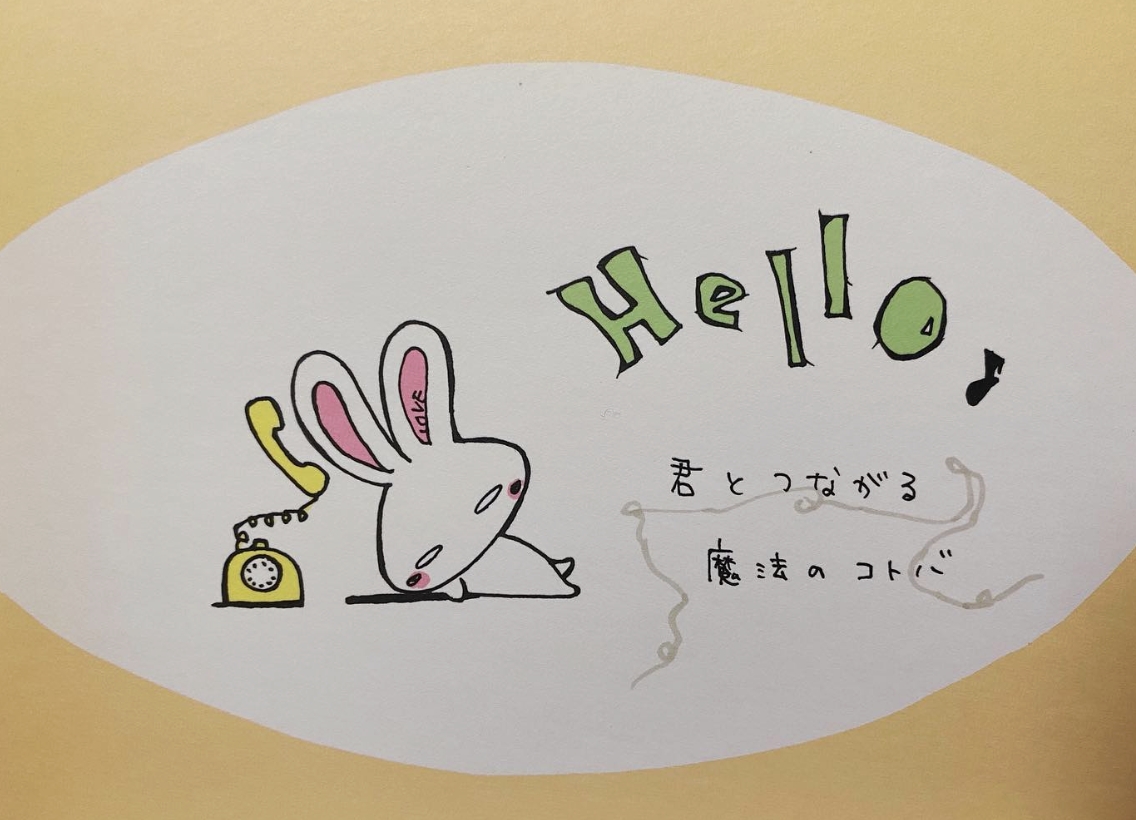 Hello♪
LOVE
君とつながる
魔法のコトバ